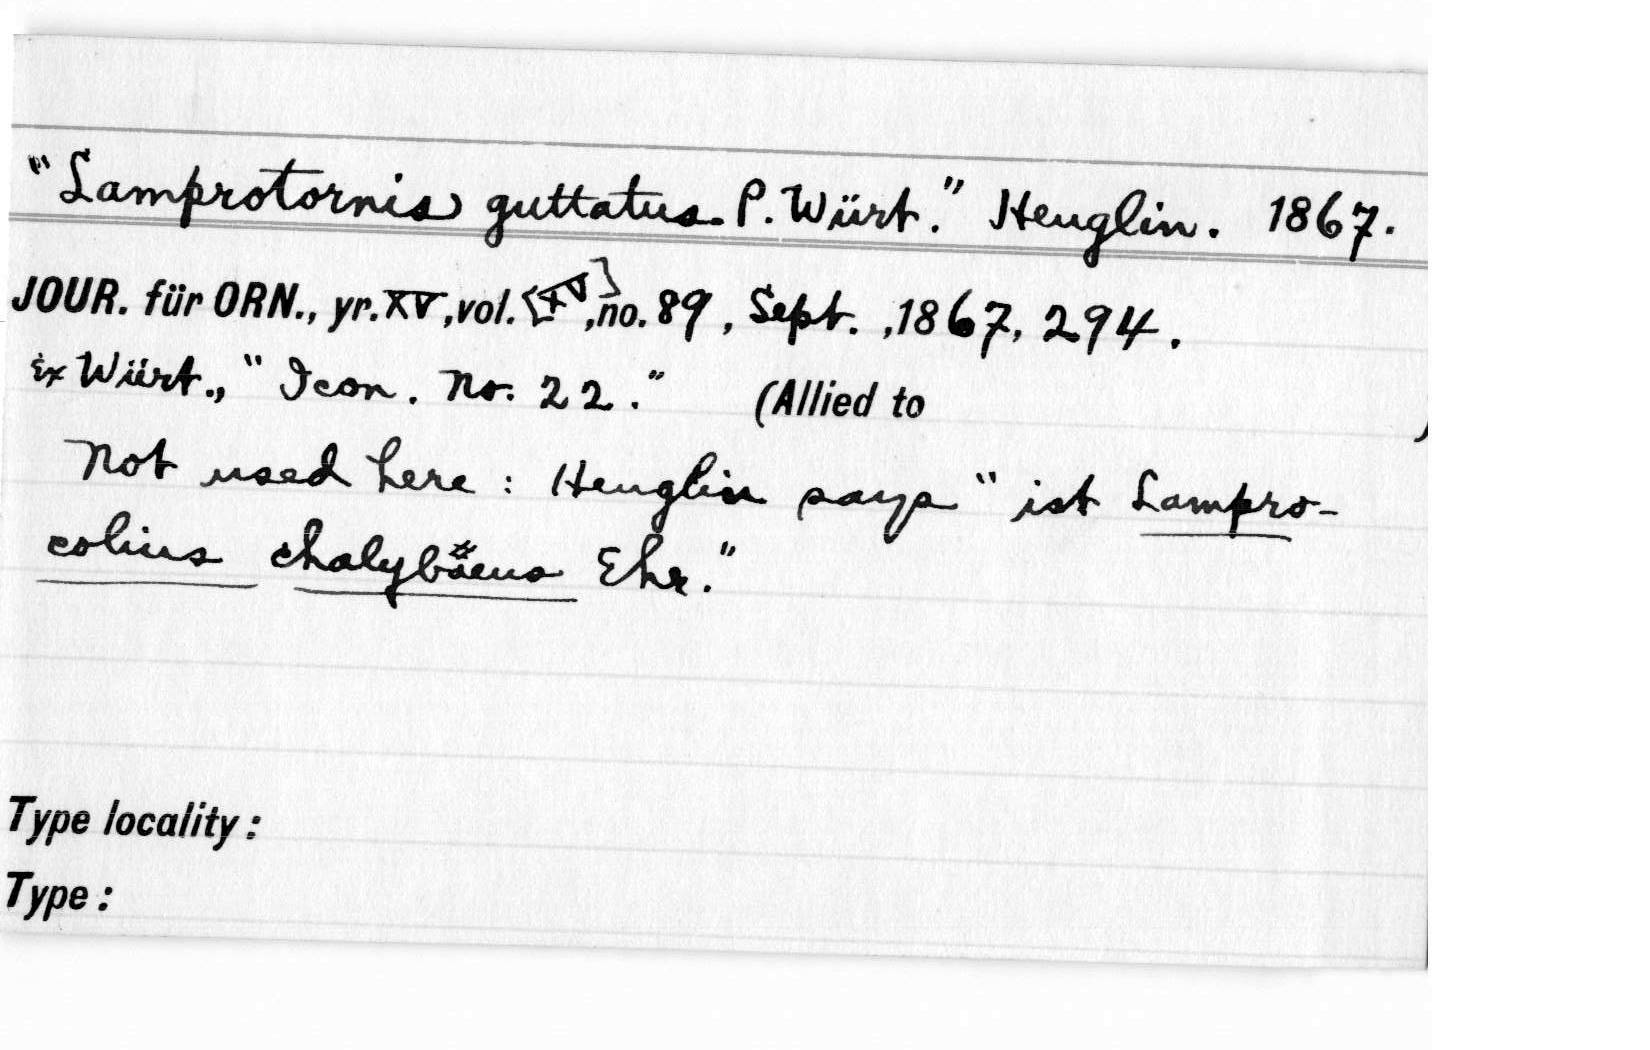 "Lamprotornis guttatus. P. Würt." Heuglin. 1867.
JOUR. für ORN., yr. XV, vol. [XV], no. 89, Sept., 1867, 294.
Ex Würt., "Icon. No. 22." (Allied to )
Not used here: Heuglin says "ist Lampro-
colius chalybäeus Ehr."
Type locality:
Type: